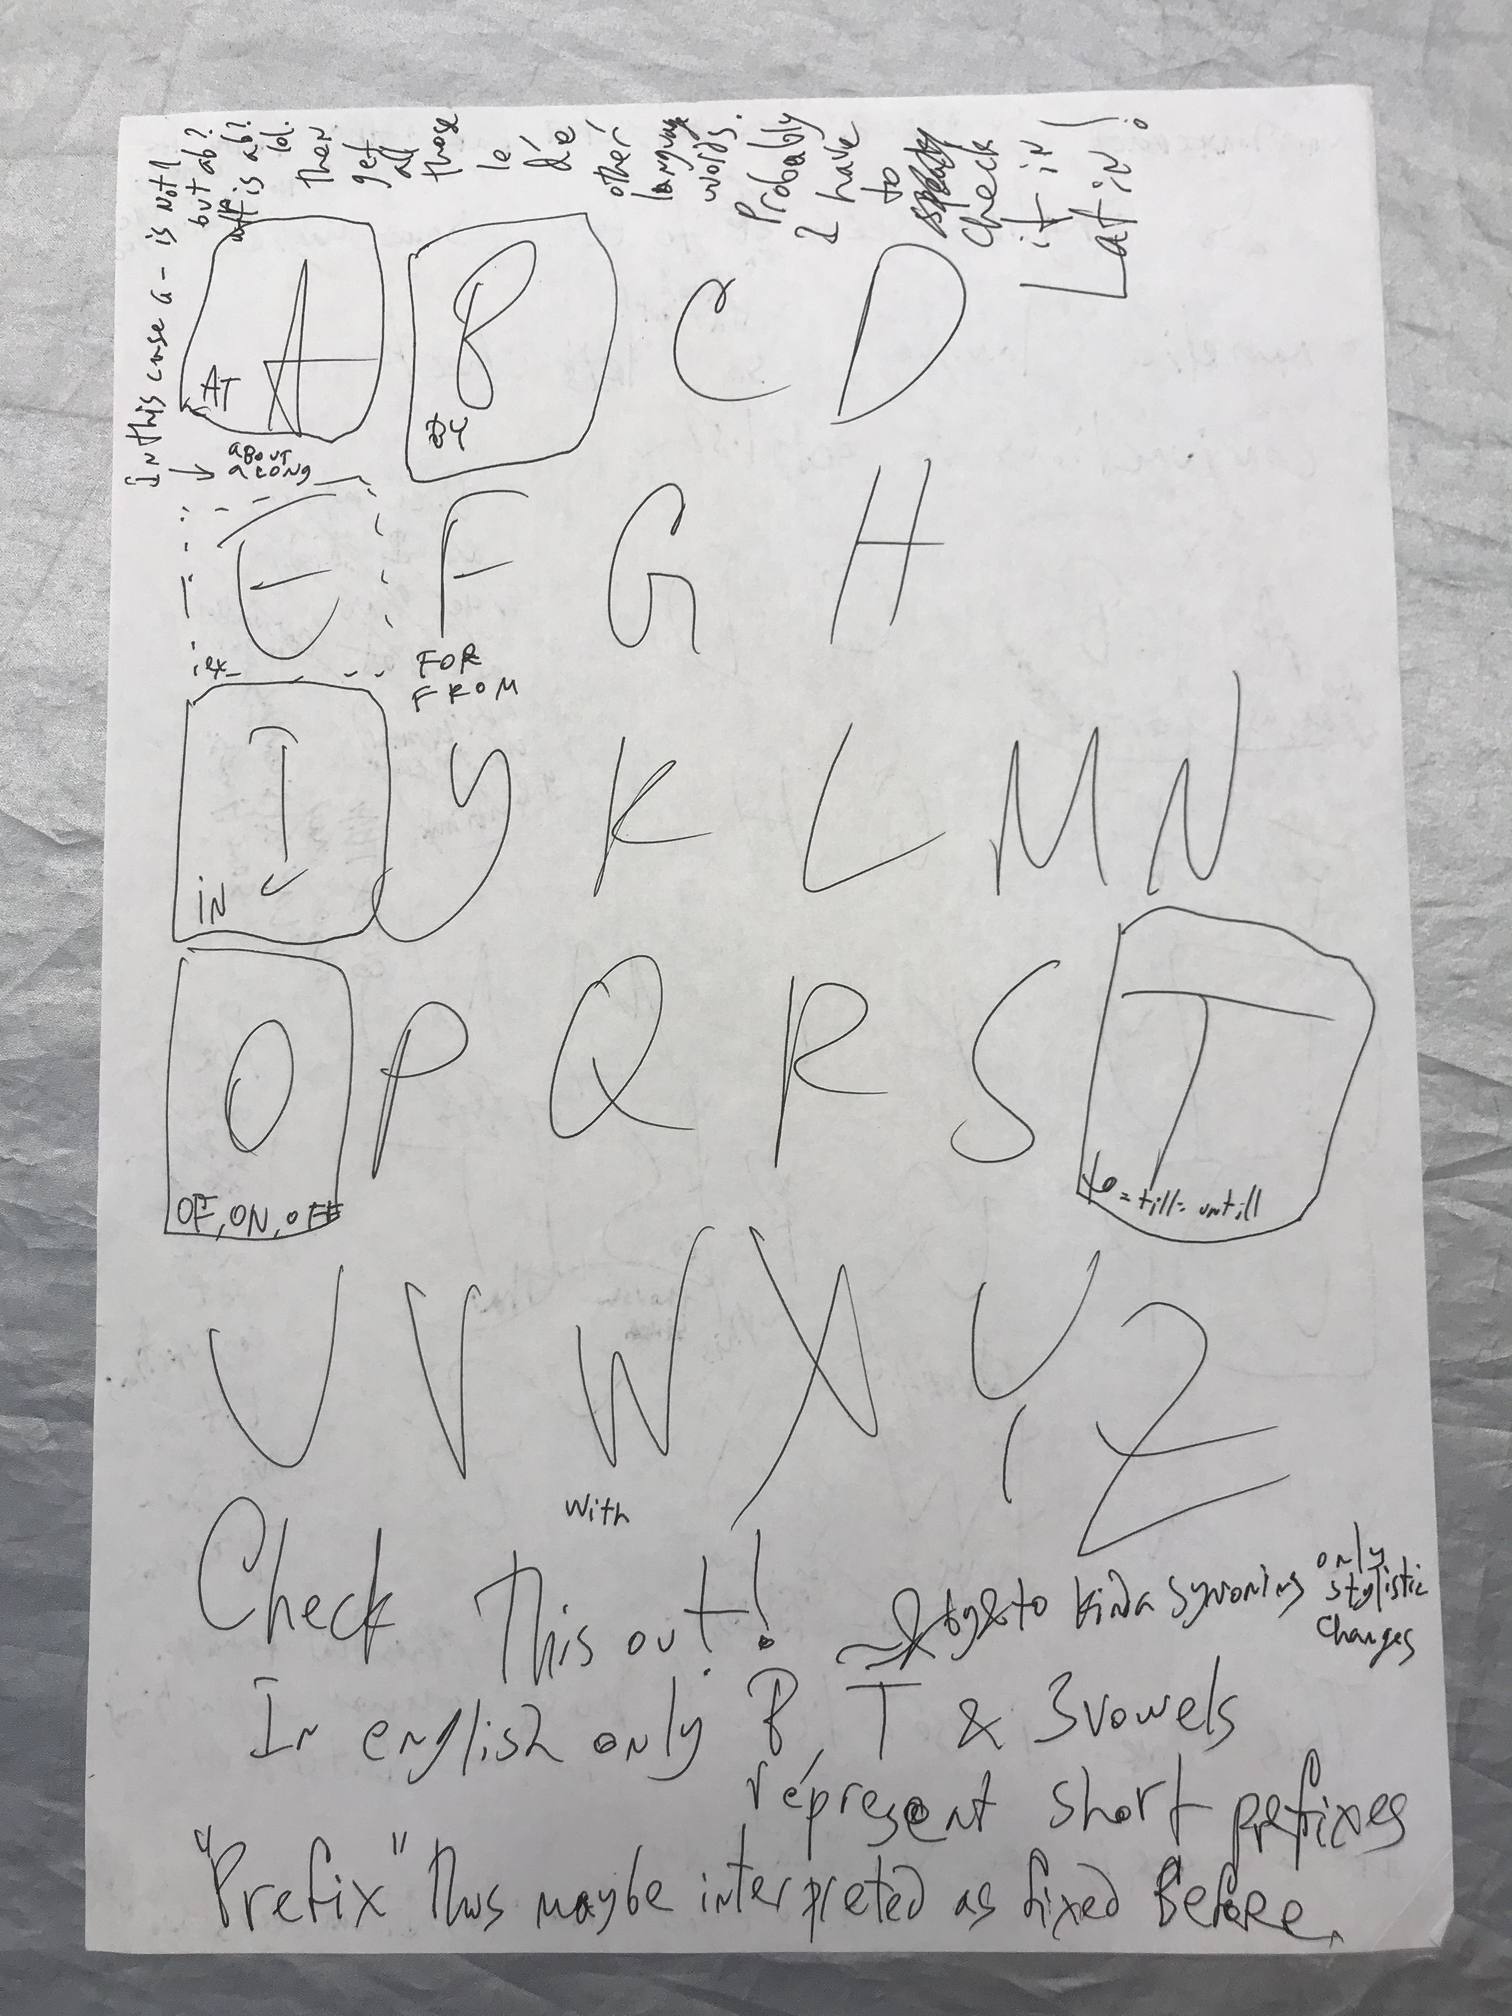 in this case a - is not 1
but ab?
att is ab?
lol.
then
get
all
those
le
de
other
language
words.
Probably
I have
to
check
it in
Latin!
A B C D
AT
BY
ABOUT
ALONG
E F G H
ex_
FOR
FROM
I J K L M N
iN
O P Q R S T
OF, ON, OFF
to = till = untill
U V W X Y Z
with
Check This out!
by & to kinda synonims only
stylistic
changes
In english only B, T & 3 vowels
represent short prefixes
"Prefix" thus maybe interpreted as fixed Before.